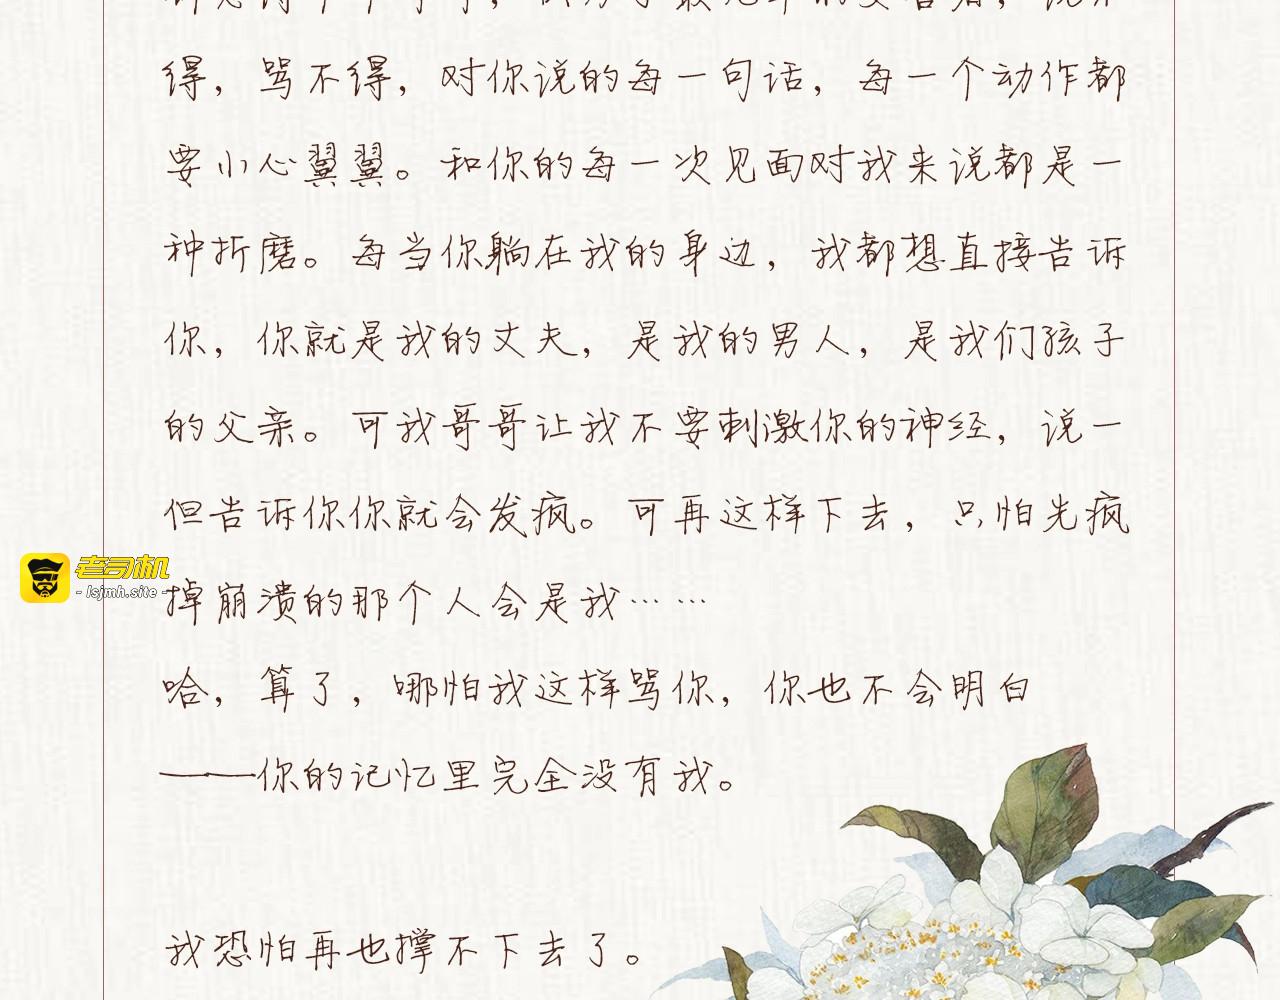 得，骂不得，对你说的每一句话，每一个动作都
要小心翼翼。和你的每一次见面对我来说都是一
种折磨。每当你躺在我的身边，我都想直接告诉
你，你就是我的丈夫，是我的男人，是我们孩子
的父亲。可我哥哥让我不要刺激你的神经，说一
但告诉你你就会发疯。可再这样下去，只怕先疯
老司机
- lsjmh.site -
掉崩溃的那个人会是我……
哈，算了，哪怕我这样骂你，你也不会明白
——你的记忆里完全没有我。
我恐怕再也撑不下去了。